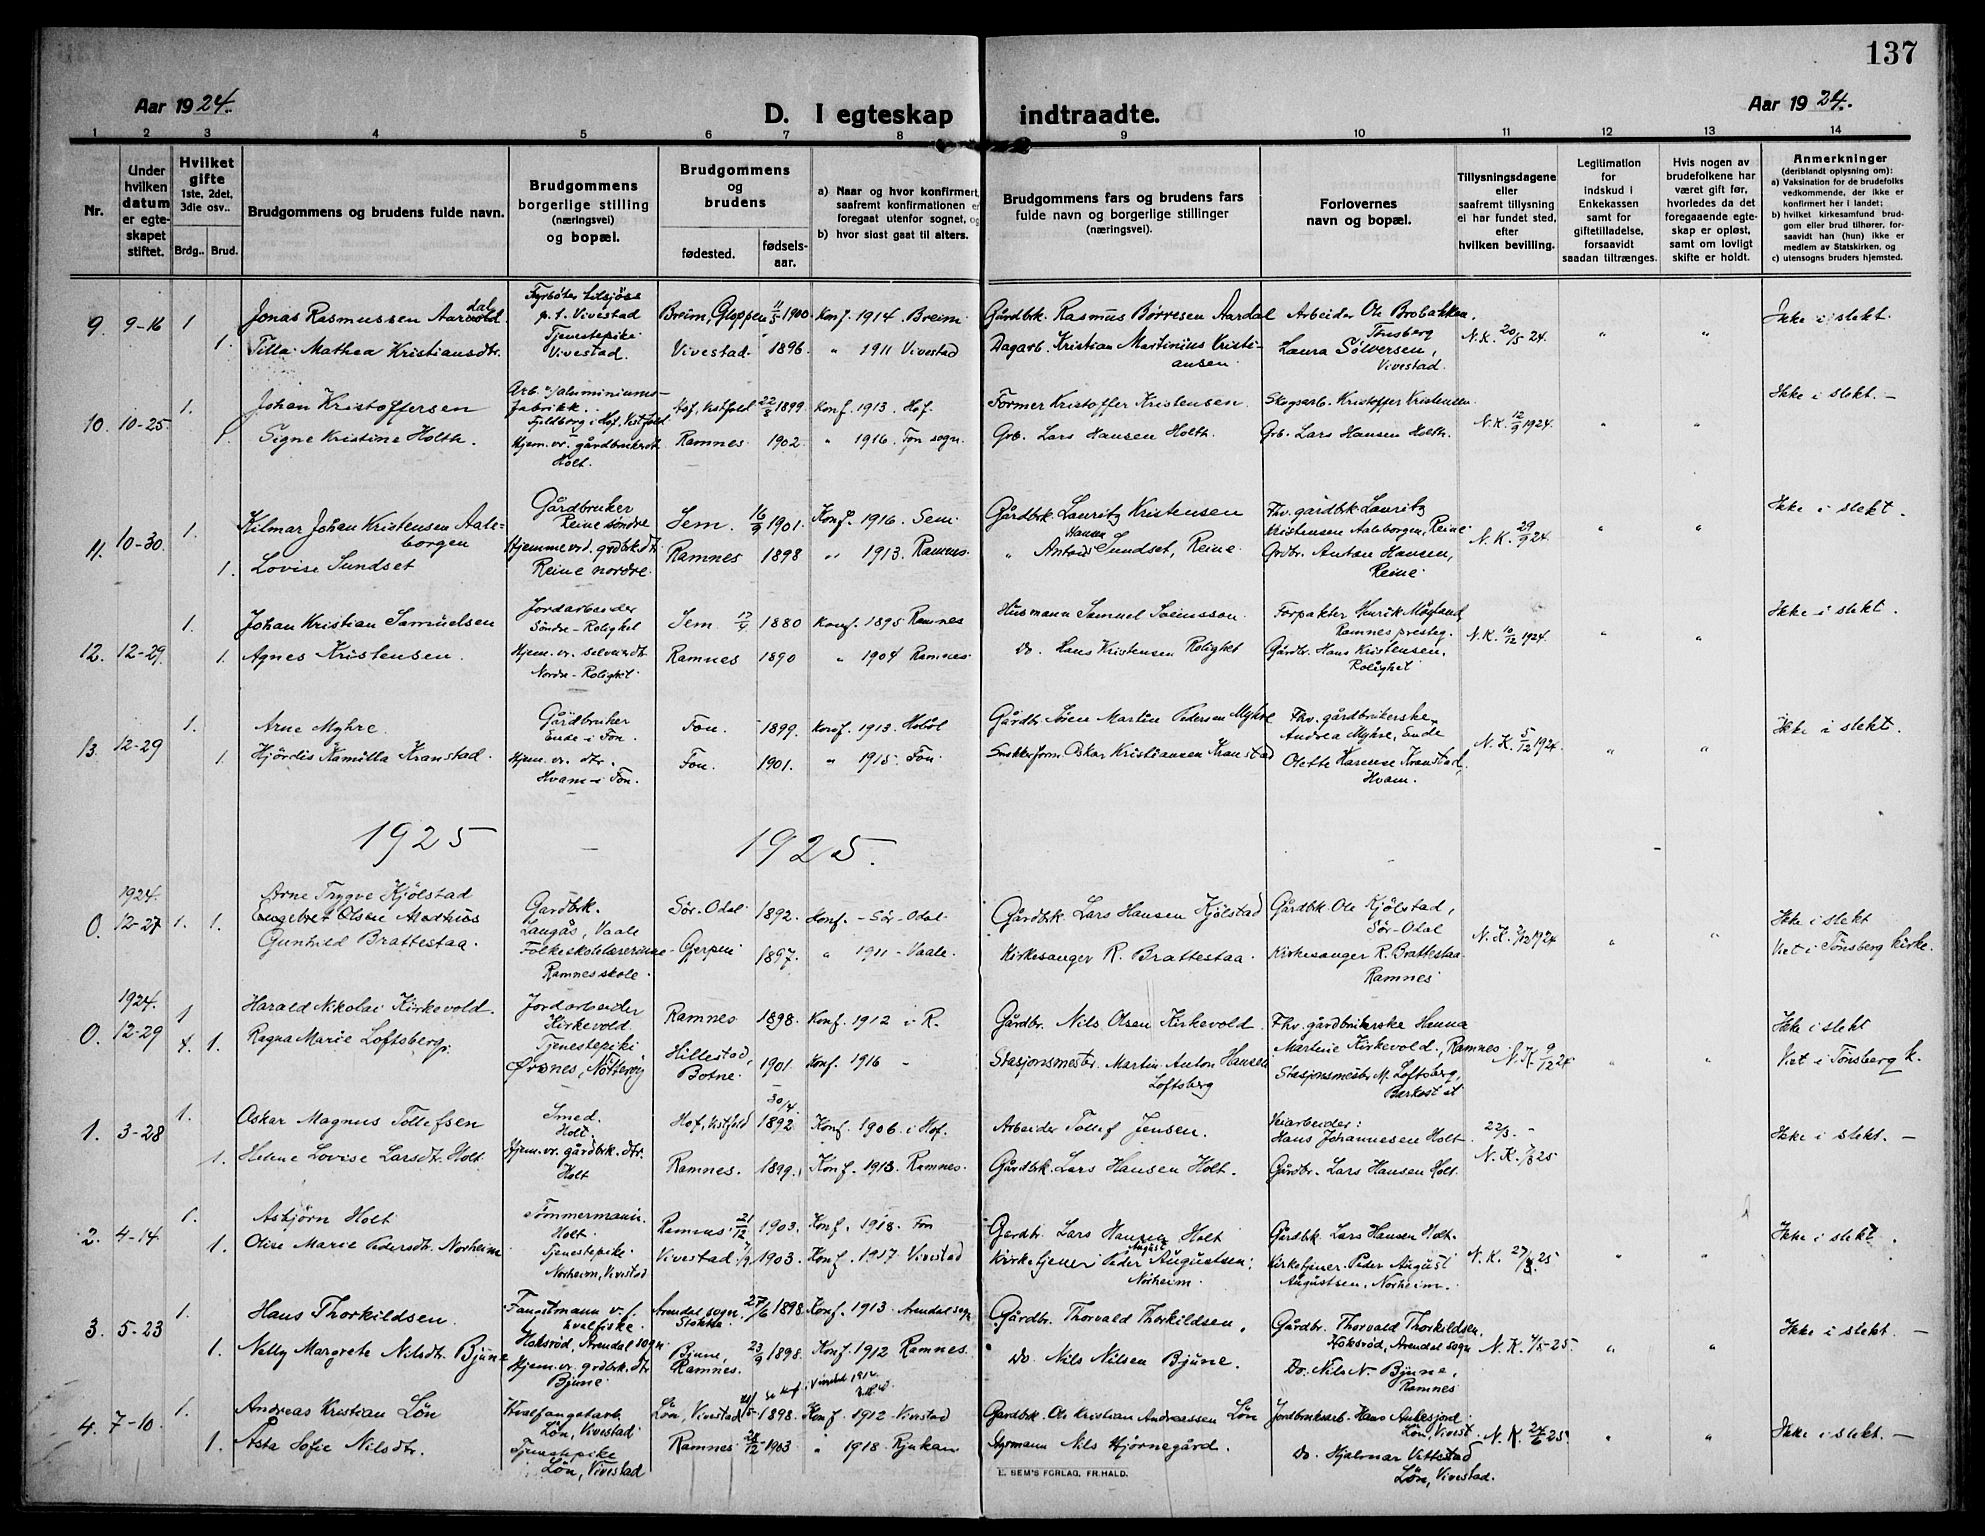 137
Aar 1924.
D. I egteskap indtraadte.
Aar 1924.
1 2 3 4 5 6 7 8 9 10 11 12 13 14
Nr.
Under hvilken datum er egteskapet stiftet.
Hvilket gifte 1ste, 2det, 3die osv..
Brdg.. Brud.
Brudgommens og brudens fulde navn.
Brudgommens borgerlige stilling (næringsvei) og bopæl.
Brudgommens og brudens
fødested. fødsels-aar.
a) Naar og hvor konfirmert, saafremt konfirmationen er foregaat utenfor sognet, og
b) hvor sidst gaat til alters.
Brudgommens fars og brudens fars fulde navn og borgerlige stillinger (næringsvei).
Forlovernes navn og bopæl.
Tillysningsdagene eller saafremt tillysning ei har fundet sted, efter hvilken bevilling.
Legitimation for indskud i Enkekassen samt for giftetilladelse, forsaavidt saadan tiltrænges.
Hvis nogen av brudefolkene har været gift før, hvorledes da det foregaaende egteskap er opløst, samt om lovligt skifte er holdt.
Anmerkninger (deriblandt oplysning om):
a) Vaksination for de brudefolks vedkommende, der ikke er konfirmert her i landet;
b) hvilket kirkesamfund brudgom eller brud tilhører, forsaavidt han (hun) ikke er medlem av Statskirken, og
c) utensogns bruders hjemsted.
9. 9-16 1 Jonas Rasmussen Aardal Fyrbøter p. t. Vivestad Breim, Gloppen 11/5 1900 Konf. 1914 Breim Gårdbrk. Rasmus Børresen Aardal Arbeider Ole Brobakken, Tønsberg N.K. 20/5 24 " " Ikke i slekt.
1. Tilla Mathea Kristiansdtr. Tjenestepike Vivestad. Vivestad 1896 " 1911 Vivestad Dagarb. Kristian Martinius Kristiansen Laura Sølversen, Vivestad.
10. 10-25 1. Johan Kristoffersen Arb. v/aluminiumsfabrikk. Fjeldborg i Hof, Vestfold Hof, Vestfold 22/8 1899 Konf. 1913. Hof. Former Kristoffer Kristensen Skogsarb. Kristoffer Kristensen N.K. 12/9 1924. " " Ikke i slekt. –
1. Signe Kristine Holth. Hjem. vr. gårdbrukerdt. Holt. Ramnes 1902 " 1916. Fon sogn. Grb. Lars Hansen Holth. Grb. Lars Hansen Holth.
11. 10-30. 1. Hilmar Johan Kristensen Aaleborgen Gårdbruker Reine søndre Sem. 16/9 1901. Konf. 1916. Sem. Gårdbrk. Lauritz Kristensen Fhv. gårdbrk Lauritz Kristensen Aaleborgen, Reine N.K. 29/9 24 " " Ikke i slekt.
1. Lovise Sundset Hjemmevrd. grdbrk.dt. Reine nordre. Ramnes 1898 " 1913. Ramnes. " Anton Hansen Sundset, Reine. Grdbr. Anton Hansen, Reine
12. 12-29. 1. Johan Kristian Samuelsen Jordarbeider Søndre-Rolighet Sem 17/4 1880 Konf. 1895 Ramnes Husmann Samuel Svensson. Forpakter Henrik Møgland, Ramnes presteg. N.K. 10/12 1924. " " Ikke i slekt.
1. Agnes Kristensen. Hjem. vr. selveierdt. Nordre-Rolighet Ramnes 1890 " 1904 Ramnes. Do. Hans Kristensen Rolighet Gårdbr. Hans Kristensen, Rolighet
13. 12-29 1. Arne Myhre. Gårdbruker Ende i Fon. Fon. 1899. Konf. 1913 Hobøl Gårdb. Søren Martin Pedersen Myhre Fhv. gårdbrukerske Andrea Myhre, Ende N.K. 5/12 1924. " " Ikke i slekt.
1. Hjördis Kamilla Kranstad. Hjem. vr. dtr. Hvam i Fon. Fon. 1901. " 1915 Fon. Snekkerform. Oskar Kristiansen Kranstad Olette Karense Kranstad, Hvam.
1925 1925.
1924.
0. 12-27 1. 1. Arne Trygve Kjölstad Engebret Olsen Mathias Gardbrk. Langås, Vaale Sør-Odal 1892. Konf. – Sør-Odal Gårdbrk. Lars Hansen Kjölstad Gårdbk. Ole Kjölstad, Sør-Odal N.K. /12 1924 " " Ikke i slekt
Gunhild Brattestaa. Folkeskolelærerinne Ramnes skole. Gjerpen 1897. " 1911 – Vaale. Kirkesanger R. Brattestaa. Kirkesanger R. Brattestaa Ramnes Viet i Tønsberg kirke.
1924.
0. 12-29 1 Harald Nikolai Kirkevold. Jordarbeider Kirkevold. Ramnes 1898. Konf. 1912 i R. Gårdbr. Nils Olsen Kirkevold Fhv. gårdbrukerske Hanna Martine Kirkevold, Ramnes N.K. 9/12 24 " " Ikke i slekt
1. Ragna Marie Loftsberg. Tjenestepike, Ørsnes, Nøtterøy Hillestad, Botne. 1901. Konf. 1916 – Stasjonsmestr. Martin Anton Hansen Loftsberg Stasjonsmestr M. Loftsberg, Barkost st Viet i Tønsberg k.
1. 3-28 1. Oskar Magnus Tollefsen Smed. Holt. Hof, Vestfold 30/4. 1892 Konf. 1906. i Hof. Arbeider Tollef Jensen. Veiarbeider: Hans Johannesen Holt 22/3. – Ikke i slekt. –
1. Helene Lovise Larsdtr. Holt Hjem. vr. gårdbrk. dtr. Holt Ramnes. 1899. Konf. 1913. Ramnes. Gårdbk. Lars Hansen Holt. Gårdbr. Lars Hansen Holt. N.K. 7/3 25
2. 4-14 1. Asbjørn Holt Tømmermann. Holt. Ramnes 21/12 1903. Konf. 1918. Fon Gardbr. Lars Hansen Holt Gårdbk. Lars Hansen Holt. N.K. 27/3. 25 " " Ikke i slekt.
1. Olise Marie Pedersdtr. Norheim Tjenestepike. Norheim, Vivestad Vivestad 7/9 1903 Konf. 1917 Vivestad Kirketjener Peder August Augustsen. Norheim. Kirketjener Peder August Augustsen, Norheim.
3. 5-23 1. Hans Thorkildsen. Fangstmann v. hvalfiske. Hoksrød, Arendal sogn. Arendal sogn. Stokke. 27/6 1898. Konf. 1913. Arendal sogn Gårdbr. Thorvald Thorkildsen, Gårdbr. Thorvald Thorkildsen, Hoksrød, Arendal sogn N.K. 4/5-25. " " Ikke i slekt –
1. Nelly Margrete Nilsdtr. Bjüne Hjem. vr. grdbrk. dtr Bjüne Bjüne, Ramnes. 23/9 1898. Konf. 1912 Ramnes. Do. Nils Nilsen Bjüne. Do. Nils N. Bjüne, Ramnes
4. 7-10. 1. Andreas Kristian Løn Hvalfangstarb. Løn, Vivestad Løn, Vivestad 1898. Konf. 1912 – Vivestad Gardbrk. Ole Kristian Andreassen Løn Jordbruksarb. Hans Løn, Vivest. N.K. 24/6 25. " " Ikke i slekt. –
1. Åsta Sofie Nilsdtr. Tjenestepike Løn, Vivestad Ramnes 28/12 1903 " 1918. Rjukan Styrmann Nils Hjørnegård. Do. Hjalmar Vittstad Løn, Vivestad.
E. SEM'S FORLAG, FR.HALD.